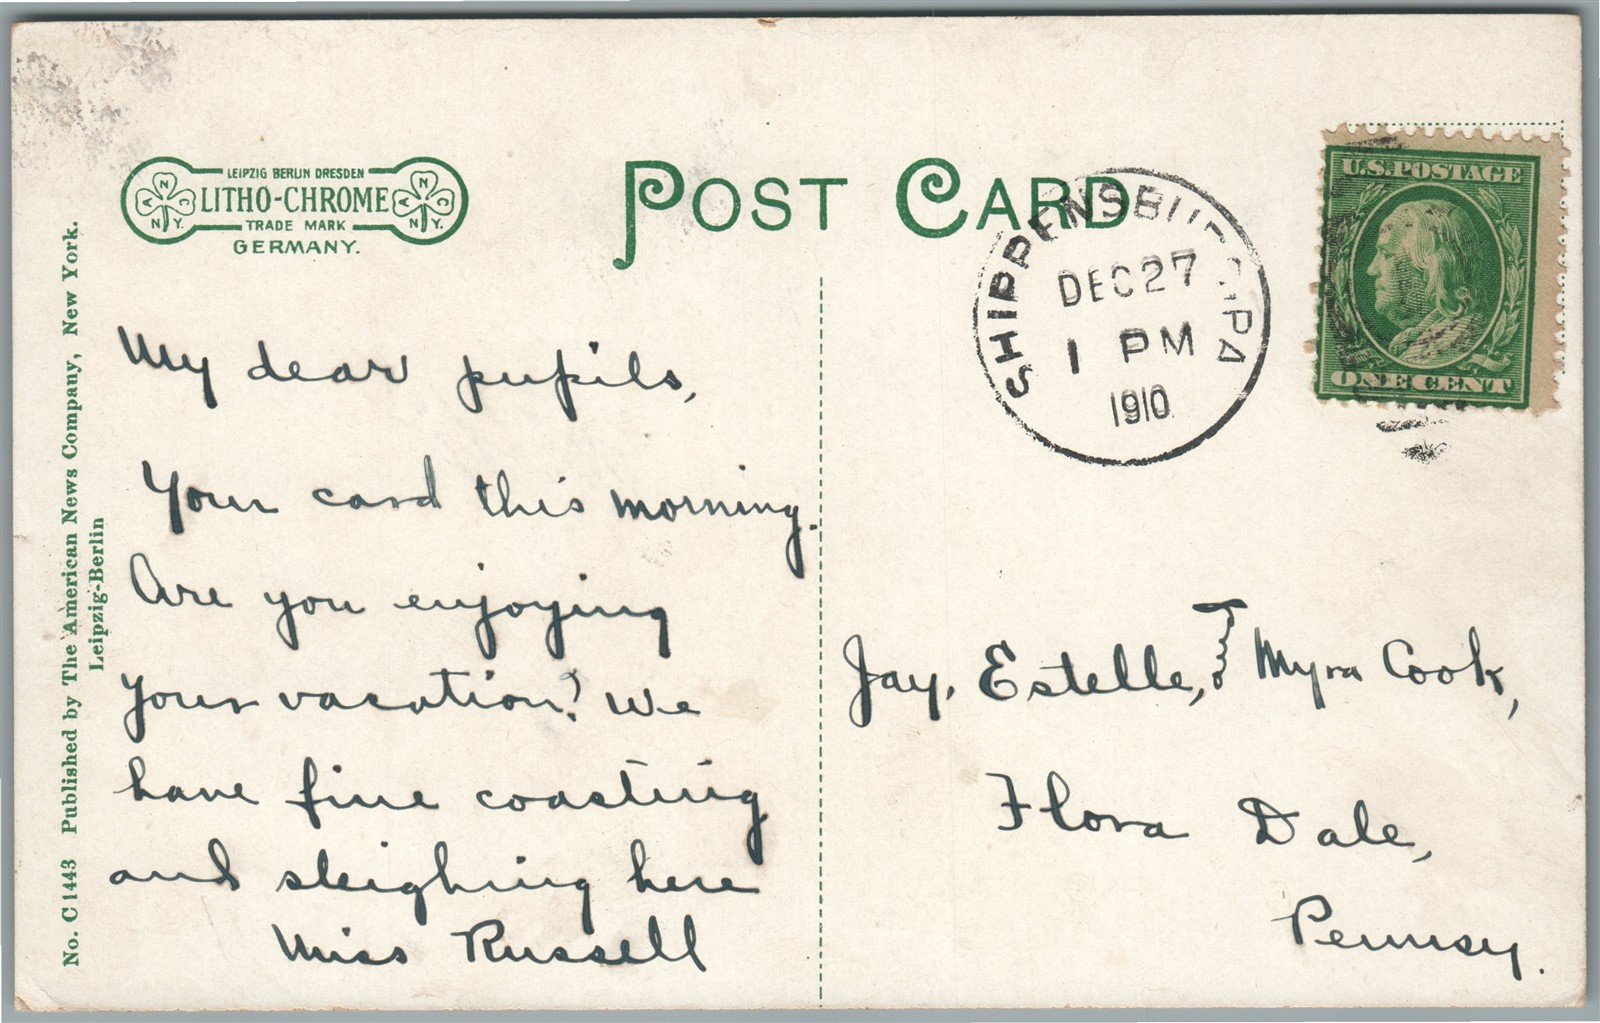 LEIPZIG BERLIN DRESDEN
LITHO-CHROME
TRADE MARK
GERMANY.
A N C
N.Y.
A N C
N.Y.
POST CARD
SHIPPENSBURG PA
DEC 27
1 PM
1910
U.S. POSTAGE
ONE CENT
No. C 1443 Published by The American News Company, New York.
Leipzig-Berlin
My dear pupils,
Your card this morning.
Are you enjoying
your vacation? We
have fine coasting
and sleighing here
Miss Russell
Jay, Estelle, and Myra Cook,
Flora Dale,
Pennsy.